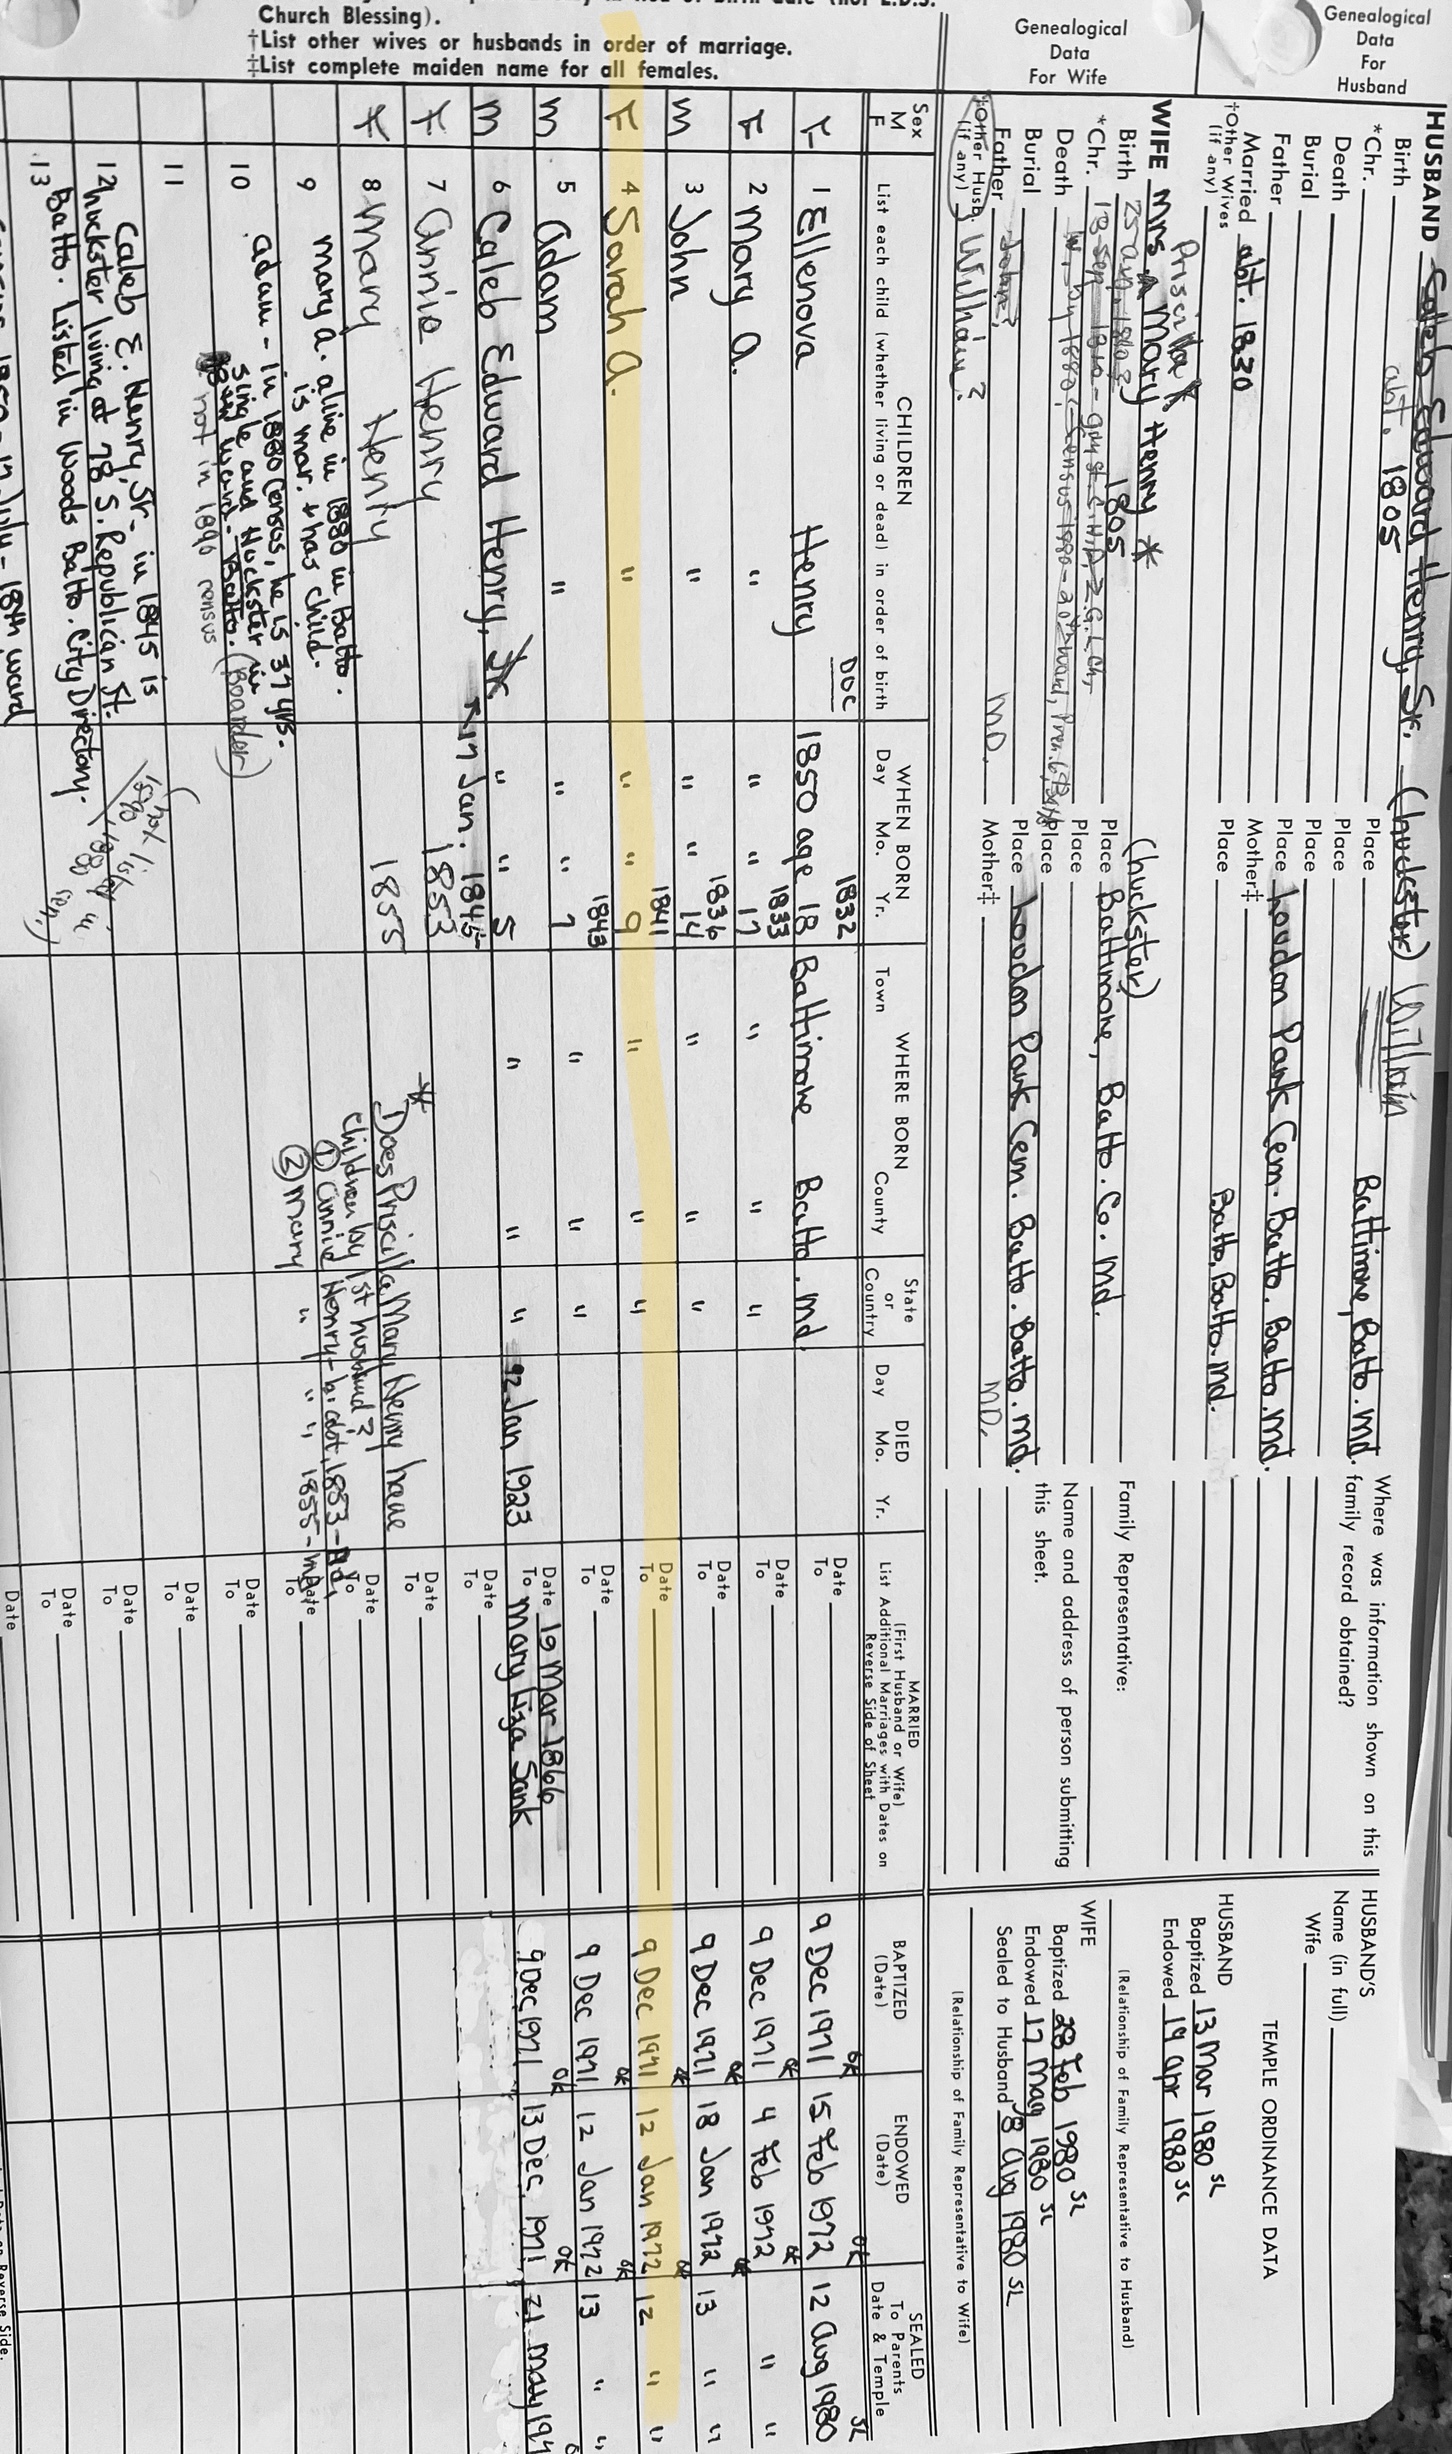 Church Blessing).
†List other wives or husbands in order of marriage.
‡List complete maiden name for all females.
Genealogical
Data
For
Husband
HUSBAND Caleb Edward Henry, Sr. (huckster) William
Birth abt. 1805 Place Baltimore, Balto. Md.
*Chr. Place
Death Place
Burial Place Loudon Park Cem. Balto. Balto. Md.
Father Mother‡
Married abt. 1830 Place Balto, Balto. Md.
†Other Wives
(if any)
Where was information shown on this
family record obtained?
Genealogical
Data
For Wife
Priscilla
WIFE Mrs Mary Henry *
(huckster)
Birth 25 1805 Place Baltimore, Balto. Co. Md.
*Chr. 13 Sep Place
Death by 1880 Census 1880 - 20th ward, Place
Burial Place Loudon Park Cem. Balto. Balto. Md.
Father John? MD. Mother‡ MD.
†Other Husb. William?
(if any)
Family Representative:
Name and address of person submitting
this sheet.
HUSBAND'S
Name (in full)
Wife
TEMPLE ORDINANCE DATA
HUSBAND
Baptized 13 Mar 1980 SL
Endowed 19 Apr 1980 SL
(Relationship of Family Representative to Husband)
WIFE
Baptized 28 Feb 1980 SL
Endowed 17 May 1980 SL
Sealed to Husband 8 Aug 1980 SL
(Relationship of Family Representative to Wife)
Sex
M
F
CHILDREN
List each child (whether living or dead) in order of birth
WHEN BORN
Day Mo. Yr.
WHERE BORN
Town County State or Country
DIED
Day Mo. Yr.
MARRIED
(First Husband or Wife)
List Additional Marriages with Dates on
Reverse Side of Sheet
BAPTIZED
(Date)
ENDOWED
(Date)
SEALED
To Parents
Date & Temple
DOC 1832
F 1 Ellenova Henry 1850 age 18 Baltimore Balto. Md. Date To 9 Dec 1971 OK 15 Feb 1972 OK 12 Aug 1980 SL
1833
F 2 Mary A. " " " 17 " " " Date To 9 Dec 1971 OK 4 Feb 1972 OK " "
1836
M 3 John " " " 14 " " " Date To 9 Dec 1971 OK 18 Jan 1972 OK 13 " "
1841
F 4 Sarah A. " " " 9 " " " Date To 9 Dec 1971 OK 12 Jan 1972 OK 12 " "
1843
M 5 Adam " " " 7 " " " Date To 9 Dec 1971 OK 12 Jan 1972 OK 13 " "
M 6 Caleb Edward Henry, Jr. " " 5 " " " 22 Jan 1923 Date 19 Mar 1866 To Mary Liza Sank 9 Dec 1971 OK 13 Dec. 1971 OK 21 May 197
17 Jan. 1845
F 7 Annie Henry 1853 Date To
F 8 Mary Henry 1855 Date To
* Does Priscilla Mary Henry have
children by 1st husband?
① Annie Henry - b. abt. 1853 - Md.
② Mary " " " 1855 - Md.
9 Mary A. alive in 1880 in Balto.
is mar. & has child.
Adam - in 1880 census, he is 37 yrs.
10 single and huckster in
ward - Balto. (Boarder)
not in 1890 census
11
Caleb E. Henry, Sr. in 1845 is
12 huckster living at 78 S. Republican St.
13 Balto. Listed in Woods Balto. City Directory.
1850 - in July - 18th ward
Date
To
Date
To
Date
To
Date
To
Date
To
Date
Reverse Side.